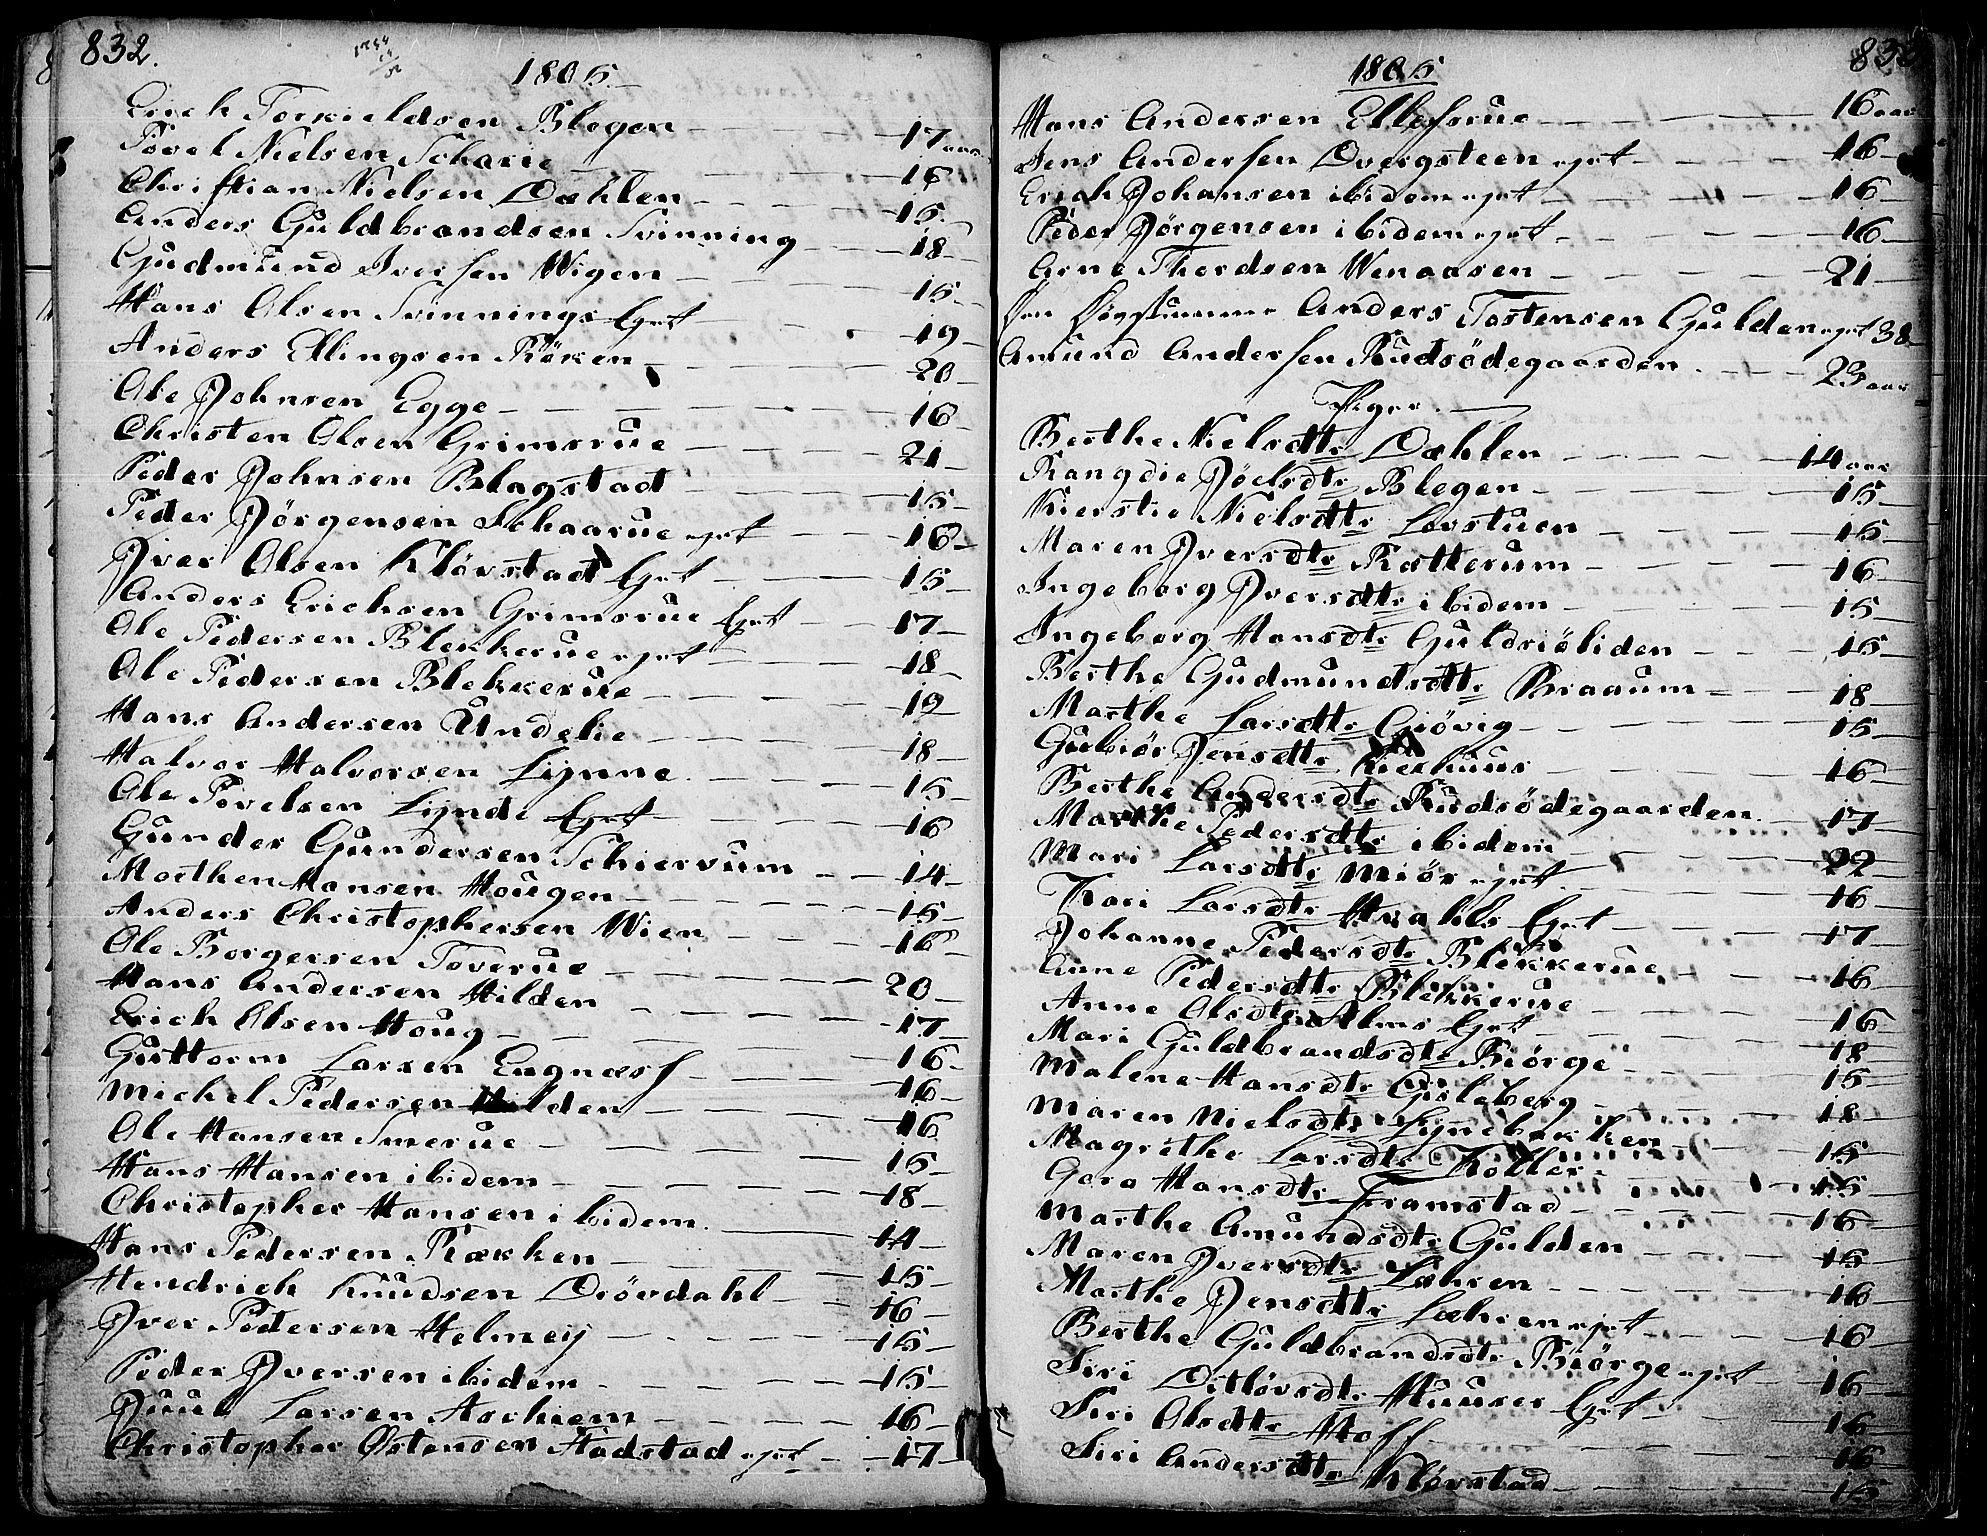 832.
1805.
Erich Torkieldsen Blegen 17 aar
Povel Nielsen Scharie 16
Christian Nielsen Dæhlen 15
Anders Guldbrandsen Svinning 18
Gudmund Iversen Wigen 15
Hans Olsen Svinnings Eyet 19
Anders Ellingsen Röken 20
Ole Johnsen Egge 16
Christen Olsen Grimsrue 21
Peder Johnsen Blagstad 15
Peder Jörgensen Schaarue eyet 16
Iver Olsen Klövstad Eyet 15
Anders Erichsen Grimsrue Eyet 17
Ole Pedersen Blekkerue eyet 18
Ole Pedersen Blekkerue 19
Hans Andersen Undelie 18
Halvor Halvorsen Lynne 15
Ole Povelsen Lynde Eyet 16
Gunder Gundersen Schiervum 14
Morthen Hansen Hougen 15
Anders Christophersen Wien 16
Ole Borgersen Toverue 20
Hans Andersen Hilden 17
Erich Olsen Houg 16
Guttorm Larsen Engnæss 16
Michel Pedersen Hilden 16
Ole Hansen Smerue 15
Hans Hansen ibidem 18
Christopher Hansen ibidem 14
Hans Pedersen Rækken 15
Hendrich Knudsen Drövdahl 16
Iver Pedersen Helmeij 15
Peder Iversen ibidem 15
Juul Larsen Aschiem 16
Christopher Østensen Stadstad eyet 17
1805
Hans Andersen Ellefsrue 16 aar
Jens Andersen Dvergsteen eyet 16
Erich Johansen ibidem eyet 16
Peder Jörgensen ibidem eyet 16
Arne Thordsen Wenaasen 21
Anders Tostensen Gulden eyet 38
Amund Andersen Rudsödegaarden 23 aar
Piger
Berthe Nielsdtr Dæhlen 14 aar
Rangdie Jöelsdtr Blegen 15
Kierstie Nielsdtr Lovstuen 15
Maren Iversdtr Kotterum 16
Ingeborg Iversdtr ibidem 15
Ingeborg Hansdtr Guldsiöliden 15
Berthe Gudmundsdtr Braaum 18
Marthe Larsdtr Giövig 15
Gubiör Jensdtr 16
Berthe Andersdtr Rudsödegaarden 17
Marthe Pedersdtr ibidem 22
Mari Larsdtr Miör eyet 16
Kari Larsdtr Hvahls Eyet 17
Johanne Pedersdtr Blekkerue 16
Anne Pedersdtr Blekkerue 16
Anne Olsdtr Alms Eyet 18
Mari Guldbrandsdtr Biörge 15
Malene Hansdtr Gisleberg 18
Maren Nielsdtr Lynebækken 15
Magrethe Larsdtr Koller 15
Goro Hansdtr Framstad 16
Marthe Amundsdtr Gulden 15
Maren Iversdtr Læhren 16
Marthe Jensdtr Læhren eyet 16
Berthe Guldbrandsdtr Biörge eyet 16
Siri Ditlövsdtr Muuser Eyet 16
Siri Olsdtr Hoff 16
Siri Andersdtr Klövstad 15